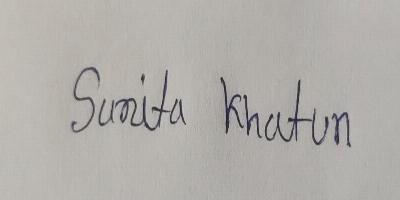 Sunita Khatun